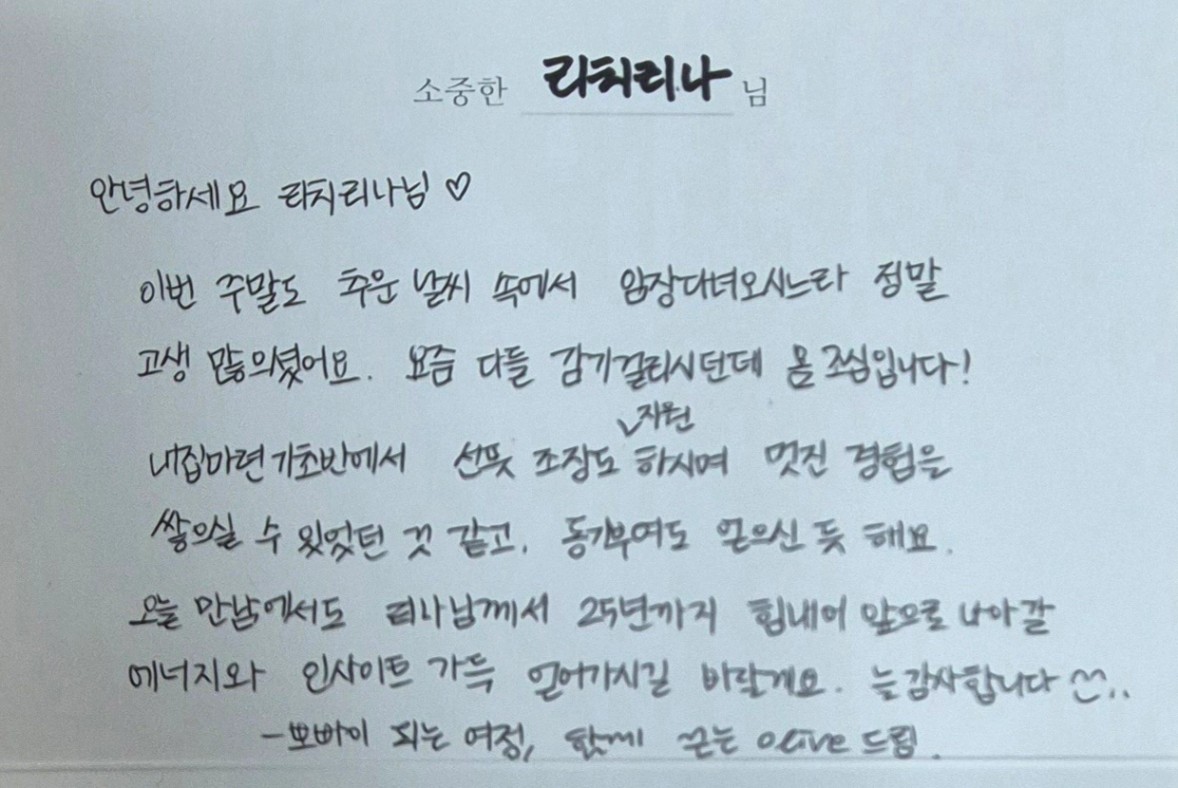 소중한 리치리나 님
안녕하세요 리치리나님 ♡
이번 주말도 추운 날씨 속에서 임장다녀오시느라 정말
고생 많으셨어요. 요즘 다들 감기걸리시던데 몸 조심입니다!
내집마련기초반에서 선뜻 조장도 지원하시며 멋진 경험을
쌓으실 수 있었던 것 같고, 동기부여도 얻으신 듯 해요.
오늘 만남에서도 리나님께서 25년까지 힘내어 앞으로 나아갈
에너지와 인사이트 가득 얻어가시길 바랄게요. 늘 감사합니다
- 뽀빠이 되는 여정, 함께 olive 드림.